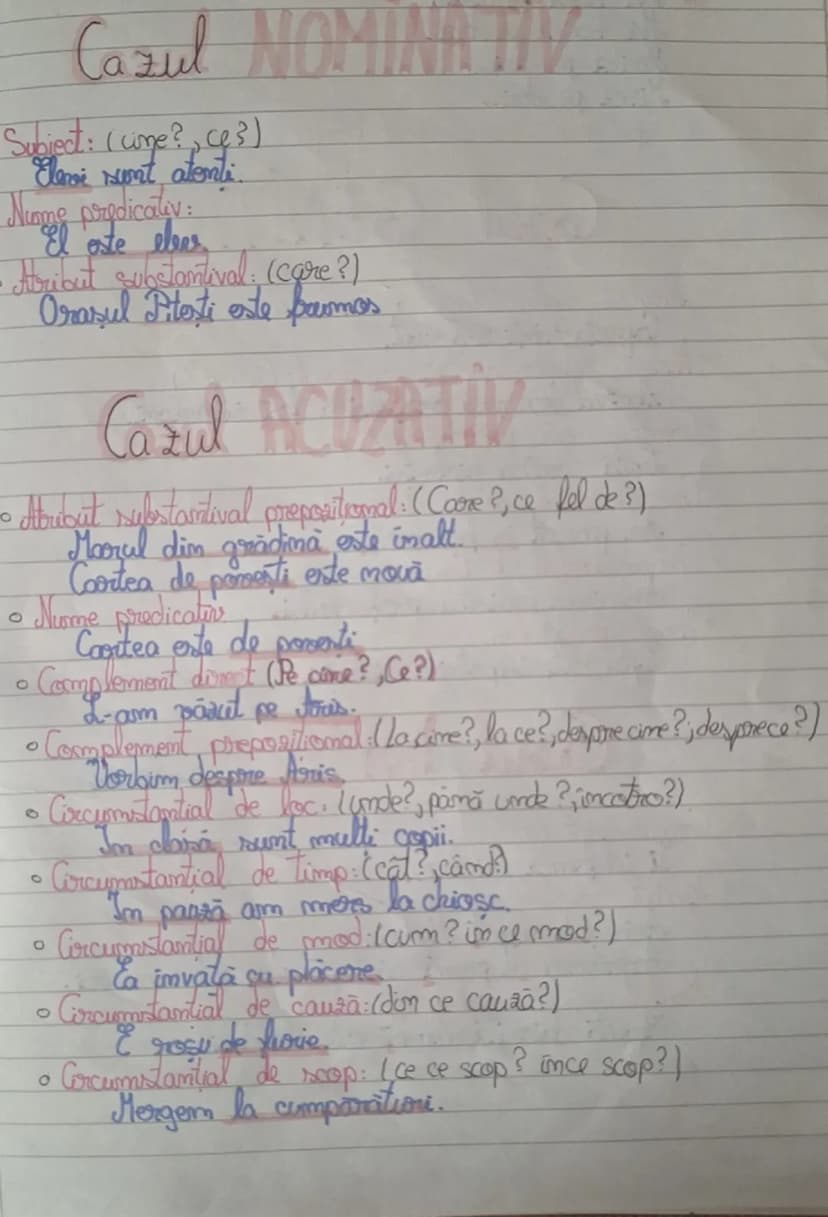 Cazul NOMINATIV
Subiect: (cine?, ce?)
Elevii sunt atenti.
Nume predicativ:
El este elev.
Atribut substantival: (care?)
Orasul Pitești este frumos
Cazul ACUZATIV
Atribut substantival prepozițional: (Care?, ce fel de?)
Marul din grădină este înalt.
Cartea de povești este nouă
Nume predicativ
Cartea este de povesti
Complement direct (Pe cine?, Ce?)
L-am văzut pe Aris.
Complement prepozitional: (la cine?, la ce?, despre cine?; desprece?)
Vorbim despre Aris.
Circumstanțial de loc: (unde?, până unde?, incotro?)
In clasă sunt multi copii.
Circumstanțial de timp: (cât?, când?)
In pauză am mers la chiosc.
Circumstanțial de mod: (cum? in ce mod?)
Ea invată cu plăcere.
Circumstanțial de cauză: (din ce cauză?)
E roșu de furie.
Circumstanțial de scop: (ce ce scop? ince scop?)
Mergem la cumpărături.